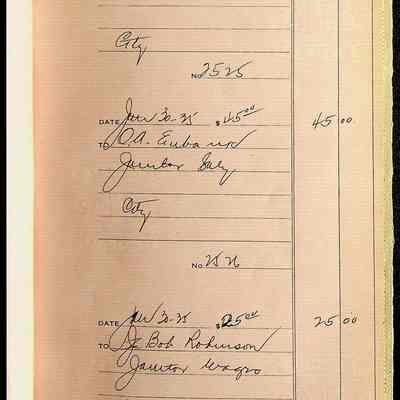 City
No 2525
DATE Jan 30-35 $45.00 45 00
TO O.A. Eubank
Janitor Saly
City
No 2526
DATE Jan 30-35 $25.00 25 00
TO Bob Robinson
Janitor Wages